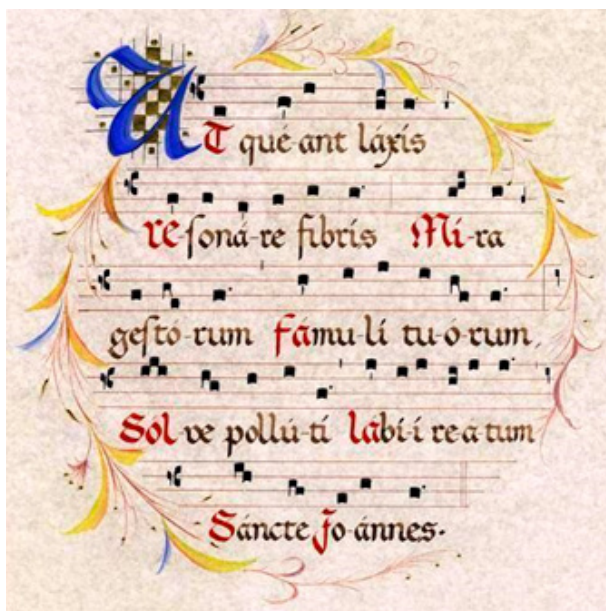 UT qué-ant láxis
re-ſoná-re fibris Mi-ra
geſtó-rum fámu-li tu-ó-rum,
Sol ve pollú-ti lábi-i re-a tum
Sáncte Jo-ánnes.